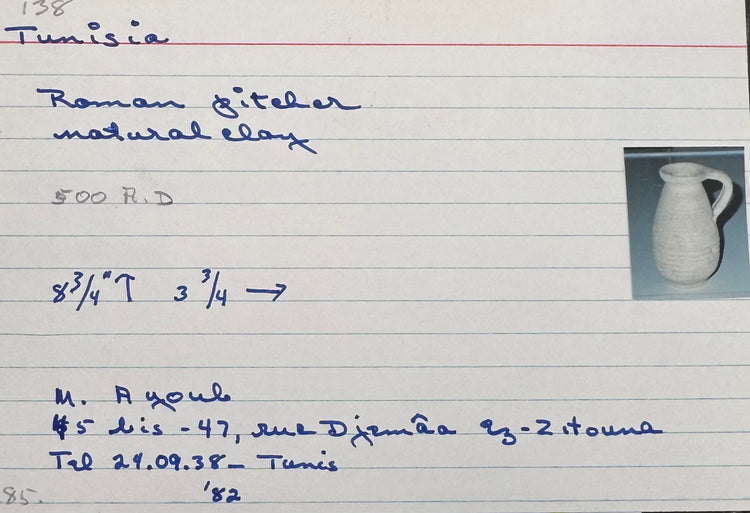 138
Tunisia
Roman pitcher
natural clay
500 A.D
8 3/4" ↑ 3 3/4 →
M. Ayoub
45 bis - 47, rue Djemâa ez-Zitouna
Tel 24.09.38 - Tunis
'82
85.